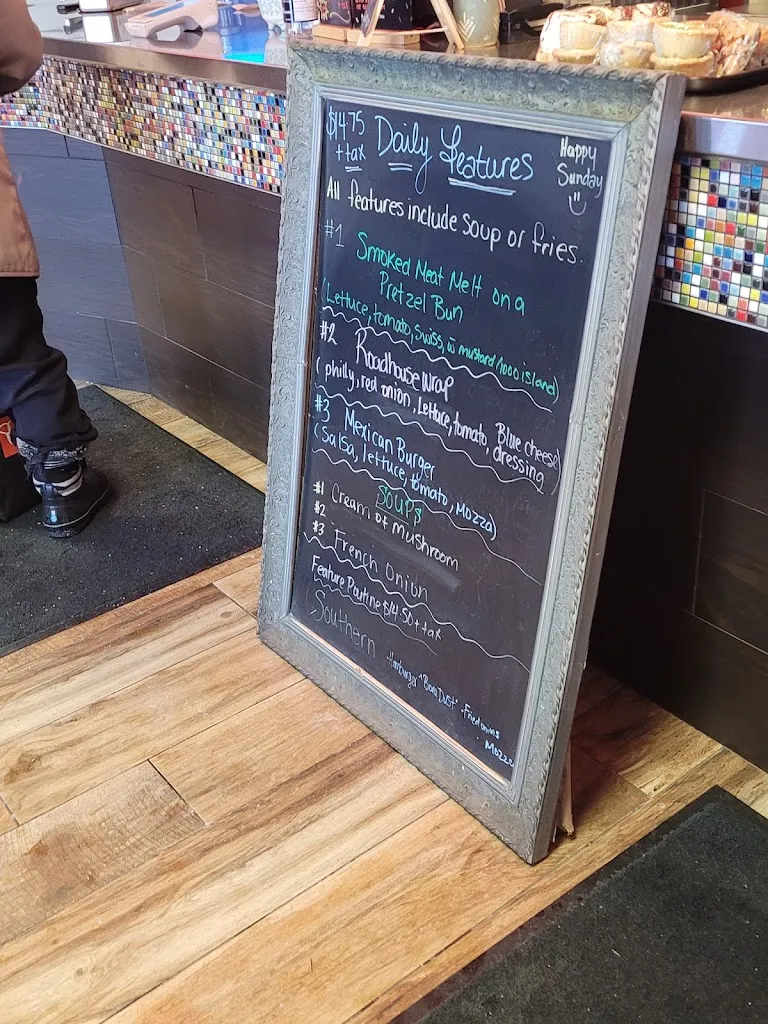 $14.75
+ tax
Daily Features
Happy
Sunday
All features include soup or fries.
#1
Smoked Meat Melt on a
Pretzel Bun
(Lettuce, tomato, Swiss, w mustard /1000 island)
#2 Roadhouse Wrap
(philly, red onion, Lettuce, tomato, Blue cheese
dressing)
#3 Mexican Burger
(Salsa, lettuce, tomato, Mozza)
Soups
#1
#2 Cream of Mushroom
#3 French Onion
Feature Poutine $14.50 + tax
Southern
- Hamburger "Bone Dust" - Fried onions
- Mozza